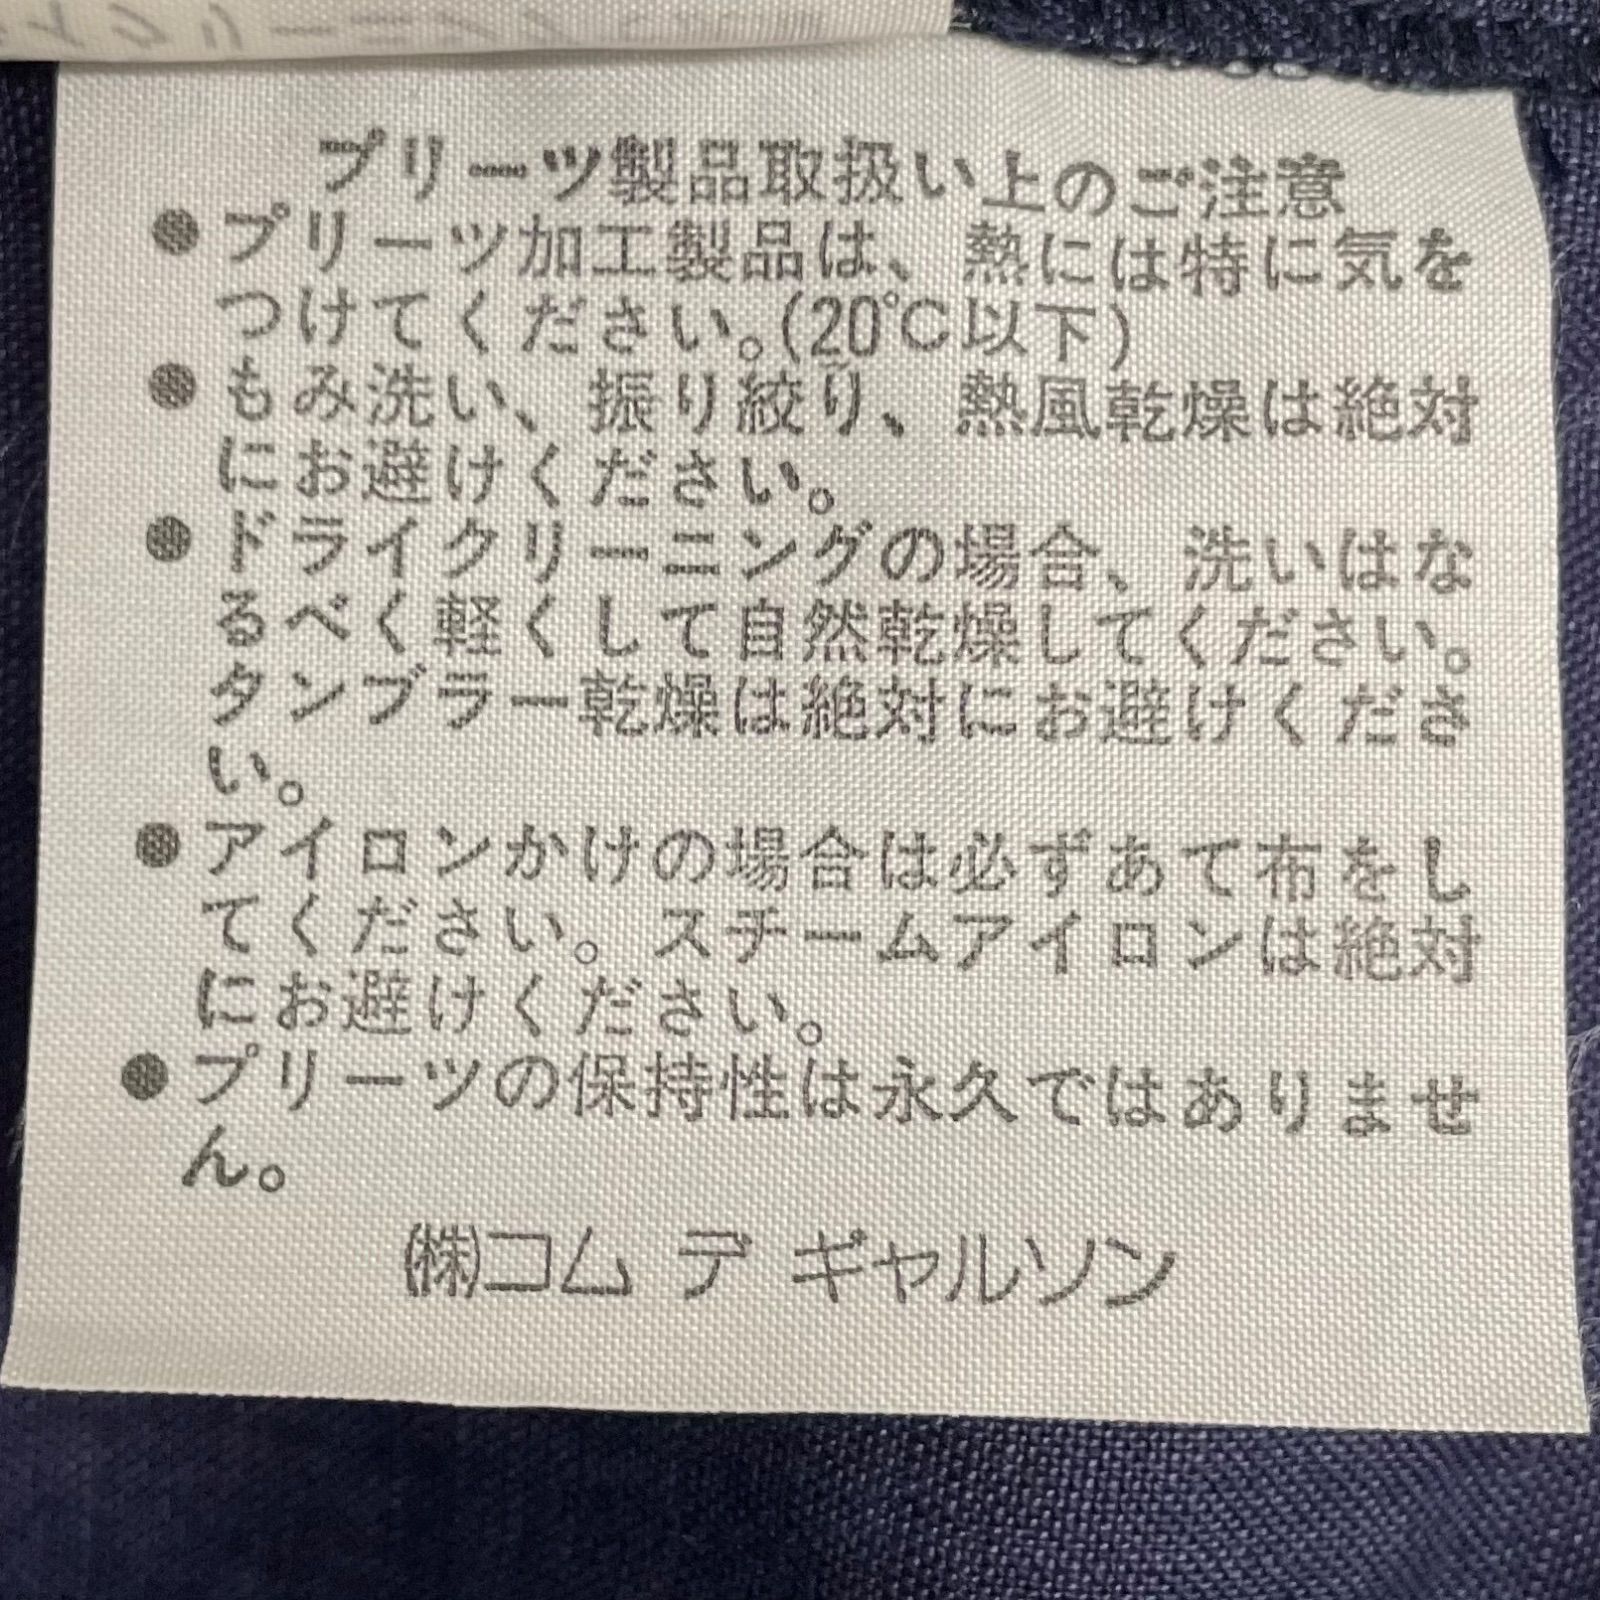 プリーツ製品取扱い上のご注意
●プリーツ加工製品は、熱には特に気を
つけてください。(20℃以下)
●もみ洗い、振り絞り、熱風乾燥は絶対
にお避けください。
●ドライクリーニングの場合、洗いはな
るべく軽くして自然乾燥してください。
タンブラー乾燥は絶対にお避けくださ
い。
●アイロンかけの場合は必ずあて布をし
てください。スチームアイロンは絶対
にお避けください。
●プリーツの保持性は永久ではありませ
ん。
㈱コム デ ギャルソン